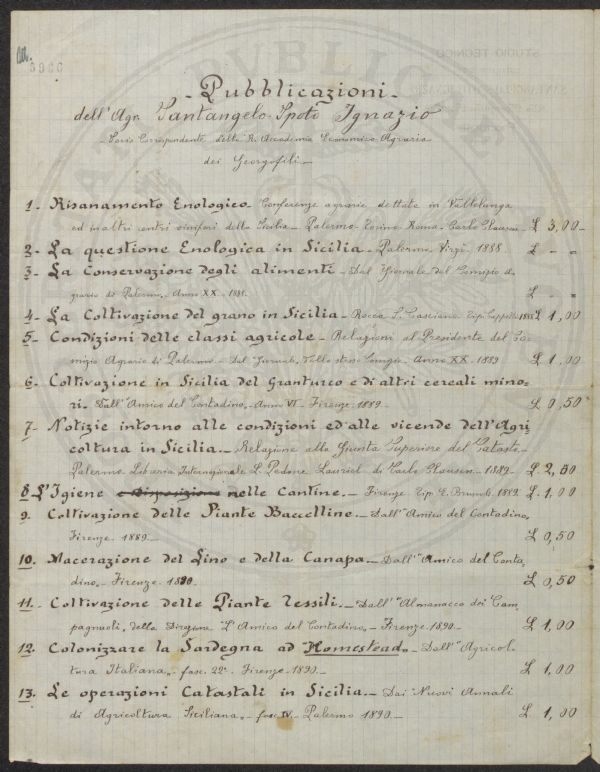 All.
5960
STUDIO TECNICO
- Pubblicazioni -
dell'Agr. Santangelo Spoto Ignazio
Socio Corrispondente della R. Accademia Economico Agraria
dei Georgofili -
1- Risanamento Enologico Conferenze agrarie dettate in Vallelunga
ed in altri centri viniferi della Sicilia - Palermo - Torino Roma - Carlo Clausen £ 3,00 -
2- La questione Enologica in Sicilia - Palermo Virzì - 1888 £ - =
3- La Conservazione degli alimenti - Dal Giornale del Comizio A-
grario di Palermo, - Anno XX - 1888. £ - =
4- La Coltivazione del grano in Sicilia - Rocca S. Casciano Tip. Cappelli £ 1,00
5- Condizioni delle classi agricole - Relazioni al Presidente del Co-
mizio Agrario di Palermo - Dal Giornale dello stesso Comizio - Anno XX - 1889 £ 1,00
6- Coltivazione in Sicilia del Granturco e di altri cereali mino=
ri. Dall'Amico del Contadino, - Anno VI - Firenze 1889 - £ 0,50
7- Notizie intorno alle condizioni ed alle vicende dell'Agri
coltura in Sicilia. - Relazione alla Giunta Superiore del Catasto -
Palermo Libreria Internazionale L. Pedone Lauriel di Carlo Clausen - 1889 - £ 2,50
8- L'Igiene e Disposizione nelle Cantine. - Firenze Tip. E. 1889 £ 1.00
9- Coltivazione delle Piante Baccelline - Dall'"Amico del Contadino,
Firenze 1889 - £ 0,50
10. Macerazione del Lino e della Canapa - Dall'"Amico del Conta
dino, - Firenze 1890 £ 0,50
11. - Coltivazione delle Piante Tessili. - Dall'"Almanacco dei Cam
pagnuoli, della Direzione "L'Amico del Contadino, - Firenze 1890 - £ 1,00
12. Colonizzare la Sardegna ad "Homestead" - Dall'"Agricol-
tura Italiana, - fasc. 22°. Firenze 1890 - £ 1,00
13. Le operazioni Catastali in Sicilia. - Dai Nuovi Annali
di Agricoltura Siciliana, - fasc. IV - Palermo 1890 - £ 1,00